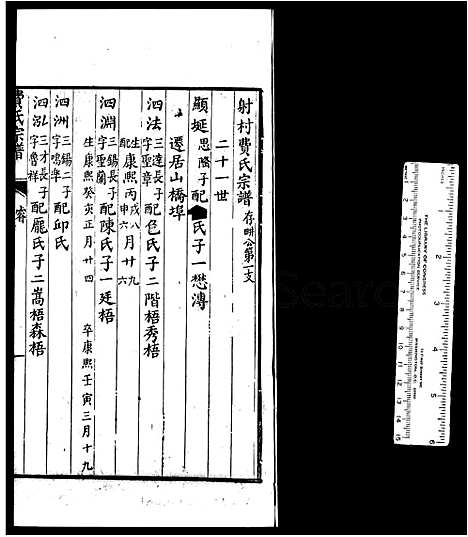 射村費氏宗譜 存畊公第二支
二十一世
顯埏 思隆子配 氏子一懋溥
遷居山橋埠
泗法 三達長子 字聖章 配色氏子二階梧秀梧
生康熙丙戌八月廿九
配生康熙丙申六月廿六
泗淵 三錫長子 字聖蘭 配陳氏子一廷梧
生康熙癸亥正月廿四 卒康熙壬寅三月十九
泗洲 三錫二子 字鳴臯 配邱氏
泗泓 三才長子 字魯祥 配龐氏子二嵩梧森梧
費氏宗譜
THE LIBRARY OF CONGRESS